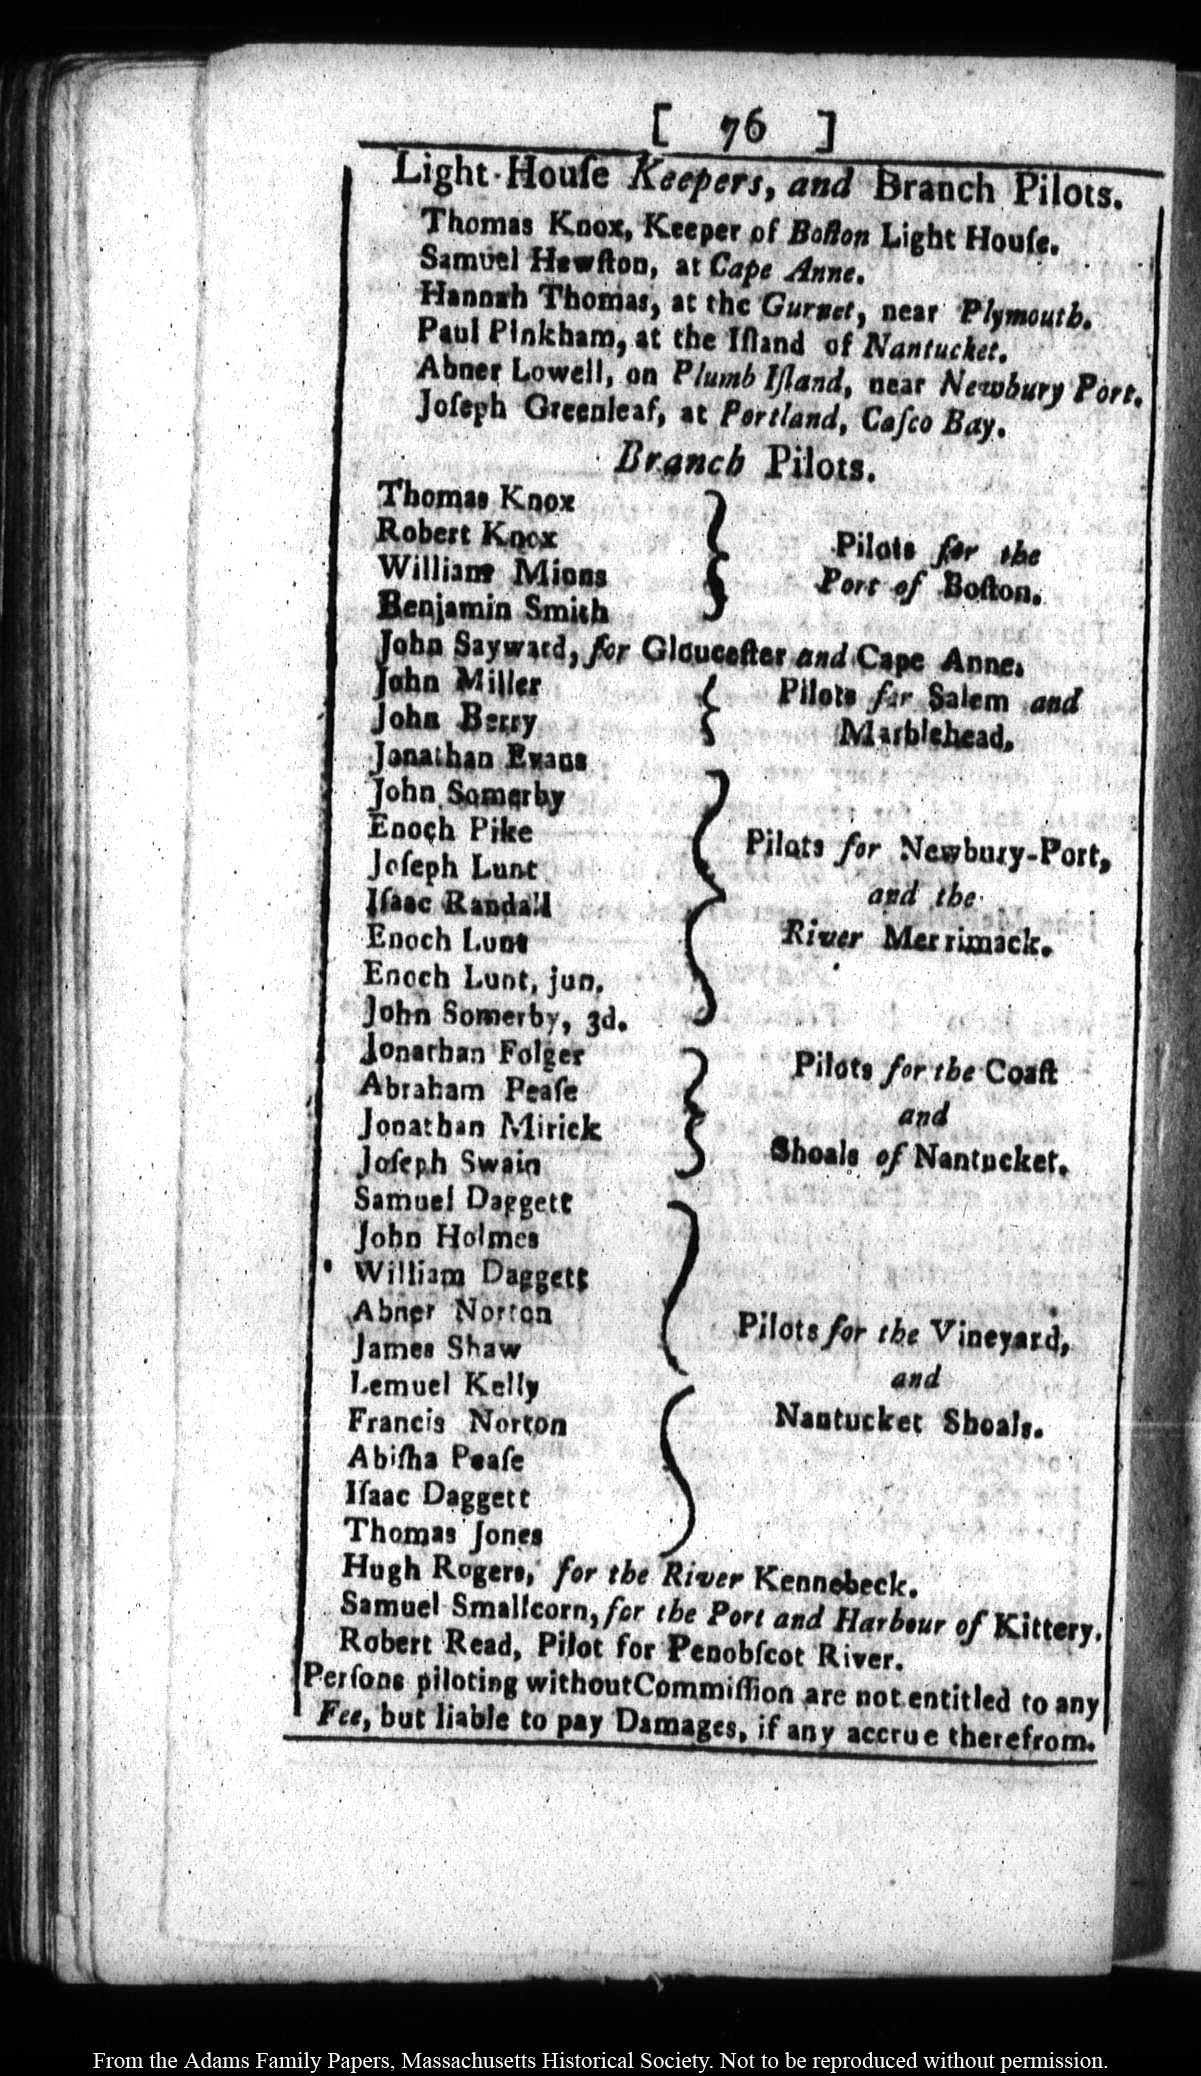 [ 76 ]
Light-Houſe Keepers, and Branch Pilots.
Thomas Knox, Keeper of Boſton Light Houſe.
Samuel Hewſton, at Cape Anne.
Hannah Thomas, at the Gurnet, near Plymouth.
Paul Pinkham, at the Iſland of Nantucket.
Abner Lowell, on Plumb Iſland, near Newbury Port.
Joſeph Greenleaf, at Portland, Caſco Bay.
Branch Pilots.
Thomas Knox
Robert Knox
William Mions
Benjamin Smith
Pilots for the
Port of Boſton.
John Sayward, for Glouceſter and Cape Anne.
John Miller
John Berry
Pilots for Salem and
Marblehead.
Jonathan Evans
John Somerby
Enoch Pike
Joſeph Lunt
Iſaac Randall
Enoch Lunt
Enoch Lunt, jun.
John Somerby, 3d.
Pilots for Newbury-Port,
and the
River Merrimack.
Jonathan Folger
Abraham Peaſe
Jonathan Mirick
Joſeph Swain
Pilots for the Coaſt
and
Shoals of Nantucket.
Samuel Daggett
John Holmes
William Daggett
Abner Norton
James Shaw
Lemuel Kelly
Francis Norton
Abiſha Peaſe
Iſaac Daggett
Thomas Jones
Pilots for the Vineyard,
and
Nantucket Shoals.
Hugh Rogers, for the River Kennebeck.
Samuel Smallcorn, for the Port and Harbour of Kittery.
Robert Read, Pilot for Penobſcot River.
Perſons piloting without Commiſſion are not entitled to any
Fee, but liable to pay Damages, if any accrue therefrom.
From the Adams Family Papers, Massachusetts Historical Society. Not to be reproduced without permission.